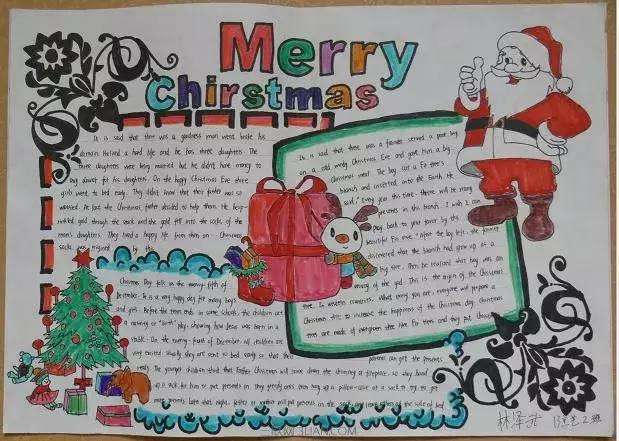 Merry
Chirstmas
It is said that there was a goodness man went broke his
domain. He lived a hard life and he has three daughters. The
three daughters were being married but he didn't have money to
buy dowry for his daughters. On the happy Christmas Eve three
girls went to bed early. They didn't know that their father was so
worried. At last the Christmas father decided to help them. He
gold through the and the gold fell into the socks of the
man's daughters. They lived a happy life from then on Christmas
socks was by this
It is said that there was a farmer served a poor boy
on a cold windy Christmas Eve and gave him a big
Christmas meal. The boy cut a fir tree's
branch and inserted into the Earth. He
said," Every year this time, there will be many
presents in this branch. I wish I can
pay back to your favor by this
beautiful fir one." After the boy left, the farmer
discovered that the branch had grew up at a
big tree. Then he realized that boy was an
envoy of the god. This is the origin of the Christmas
tree. In western countries. What every you are everyone will prepare a
Christmas tree to increase the happiness of the Christmas day. Christmas
trees are made of evergreen tree like fir trees and they put those
Christmas Day falls on the twenty-fifth of
December. It is a very happy day for many boys
and girls. Before the term ends in some schools, the children are
a nativity or "birth" play, showing how Jesus was born in a
stable. On the twenty-fourth of December all children are
very excited. Usually they are sent to bed early so that their
parents can get the presents
ready. The younger children think that Father Christmas will come down the chimney or fireplace, so they hang
up a sock for him to put presents in. They greedy ones even hang up a pillow-case or a sack to try to get
more presents. Later that night, father or mother will put presents in the sack, and leave others at the side of bed
林泽
2班
3LIAN.COM